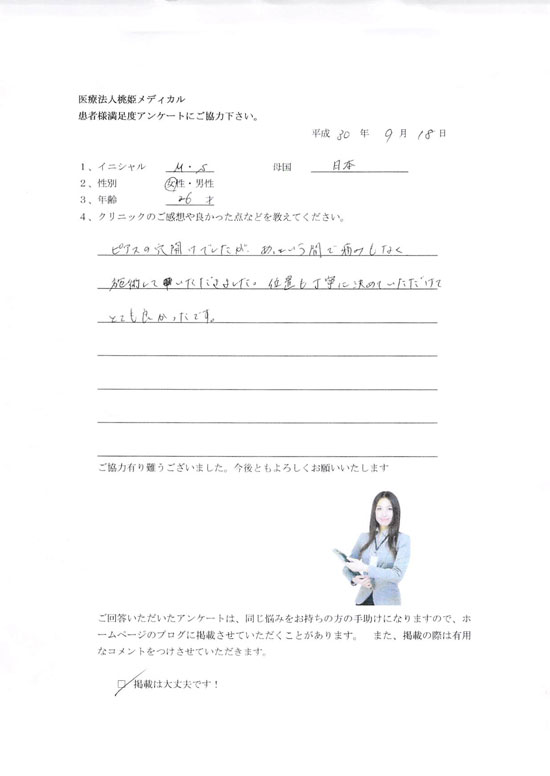 医療法人桃姫メディカル
患者様満足度アンケートにご協力下さい。
平成 30 年 9 月 18 日
1、イニシャル M・S 母国 日本
2、性別 女性・男性
3、年齢 26 才
4、クリニックのご感想や良かった点などを教えてください。
ピアスの穴開けでしたが、あっという間で痛みもなく
施術していただきました。位置も丁寧に決めていただけて
とても良かったです。
ご協力有り難うございました。今後ともよろしくお願いいたします
ご回答いただいたアンケートは、同じ悩みをお持ちの方の手助けになりますので、ホ
ームページのブログに掲載させていただくことがあります。 また、掲載の際は有用
なコメントをつけさせていただきます。
□ 掲載は大丈夫です！